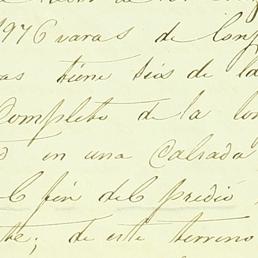 1976 varas de Long
as tiene seis de la
Completo de la lon
en una Calzada
el fin del predio
te; de este terreno